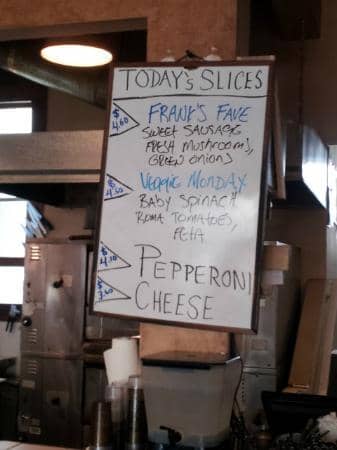 TODAY'S SLICES
$4.60 FRANK'S FAVE
SWEET SAUSAGE
FRESH MUSHROOMS,
GREEN ONIONS
$4.50 VEGGIE MONDAY
BABY SPINACH
ROMA TOMATOES,
FETA
$4.10 PEPPERONI
$3.60 CHEESE